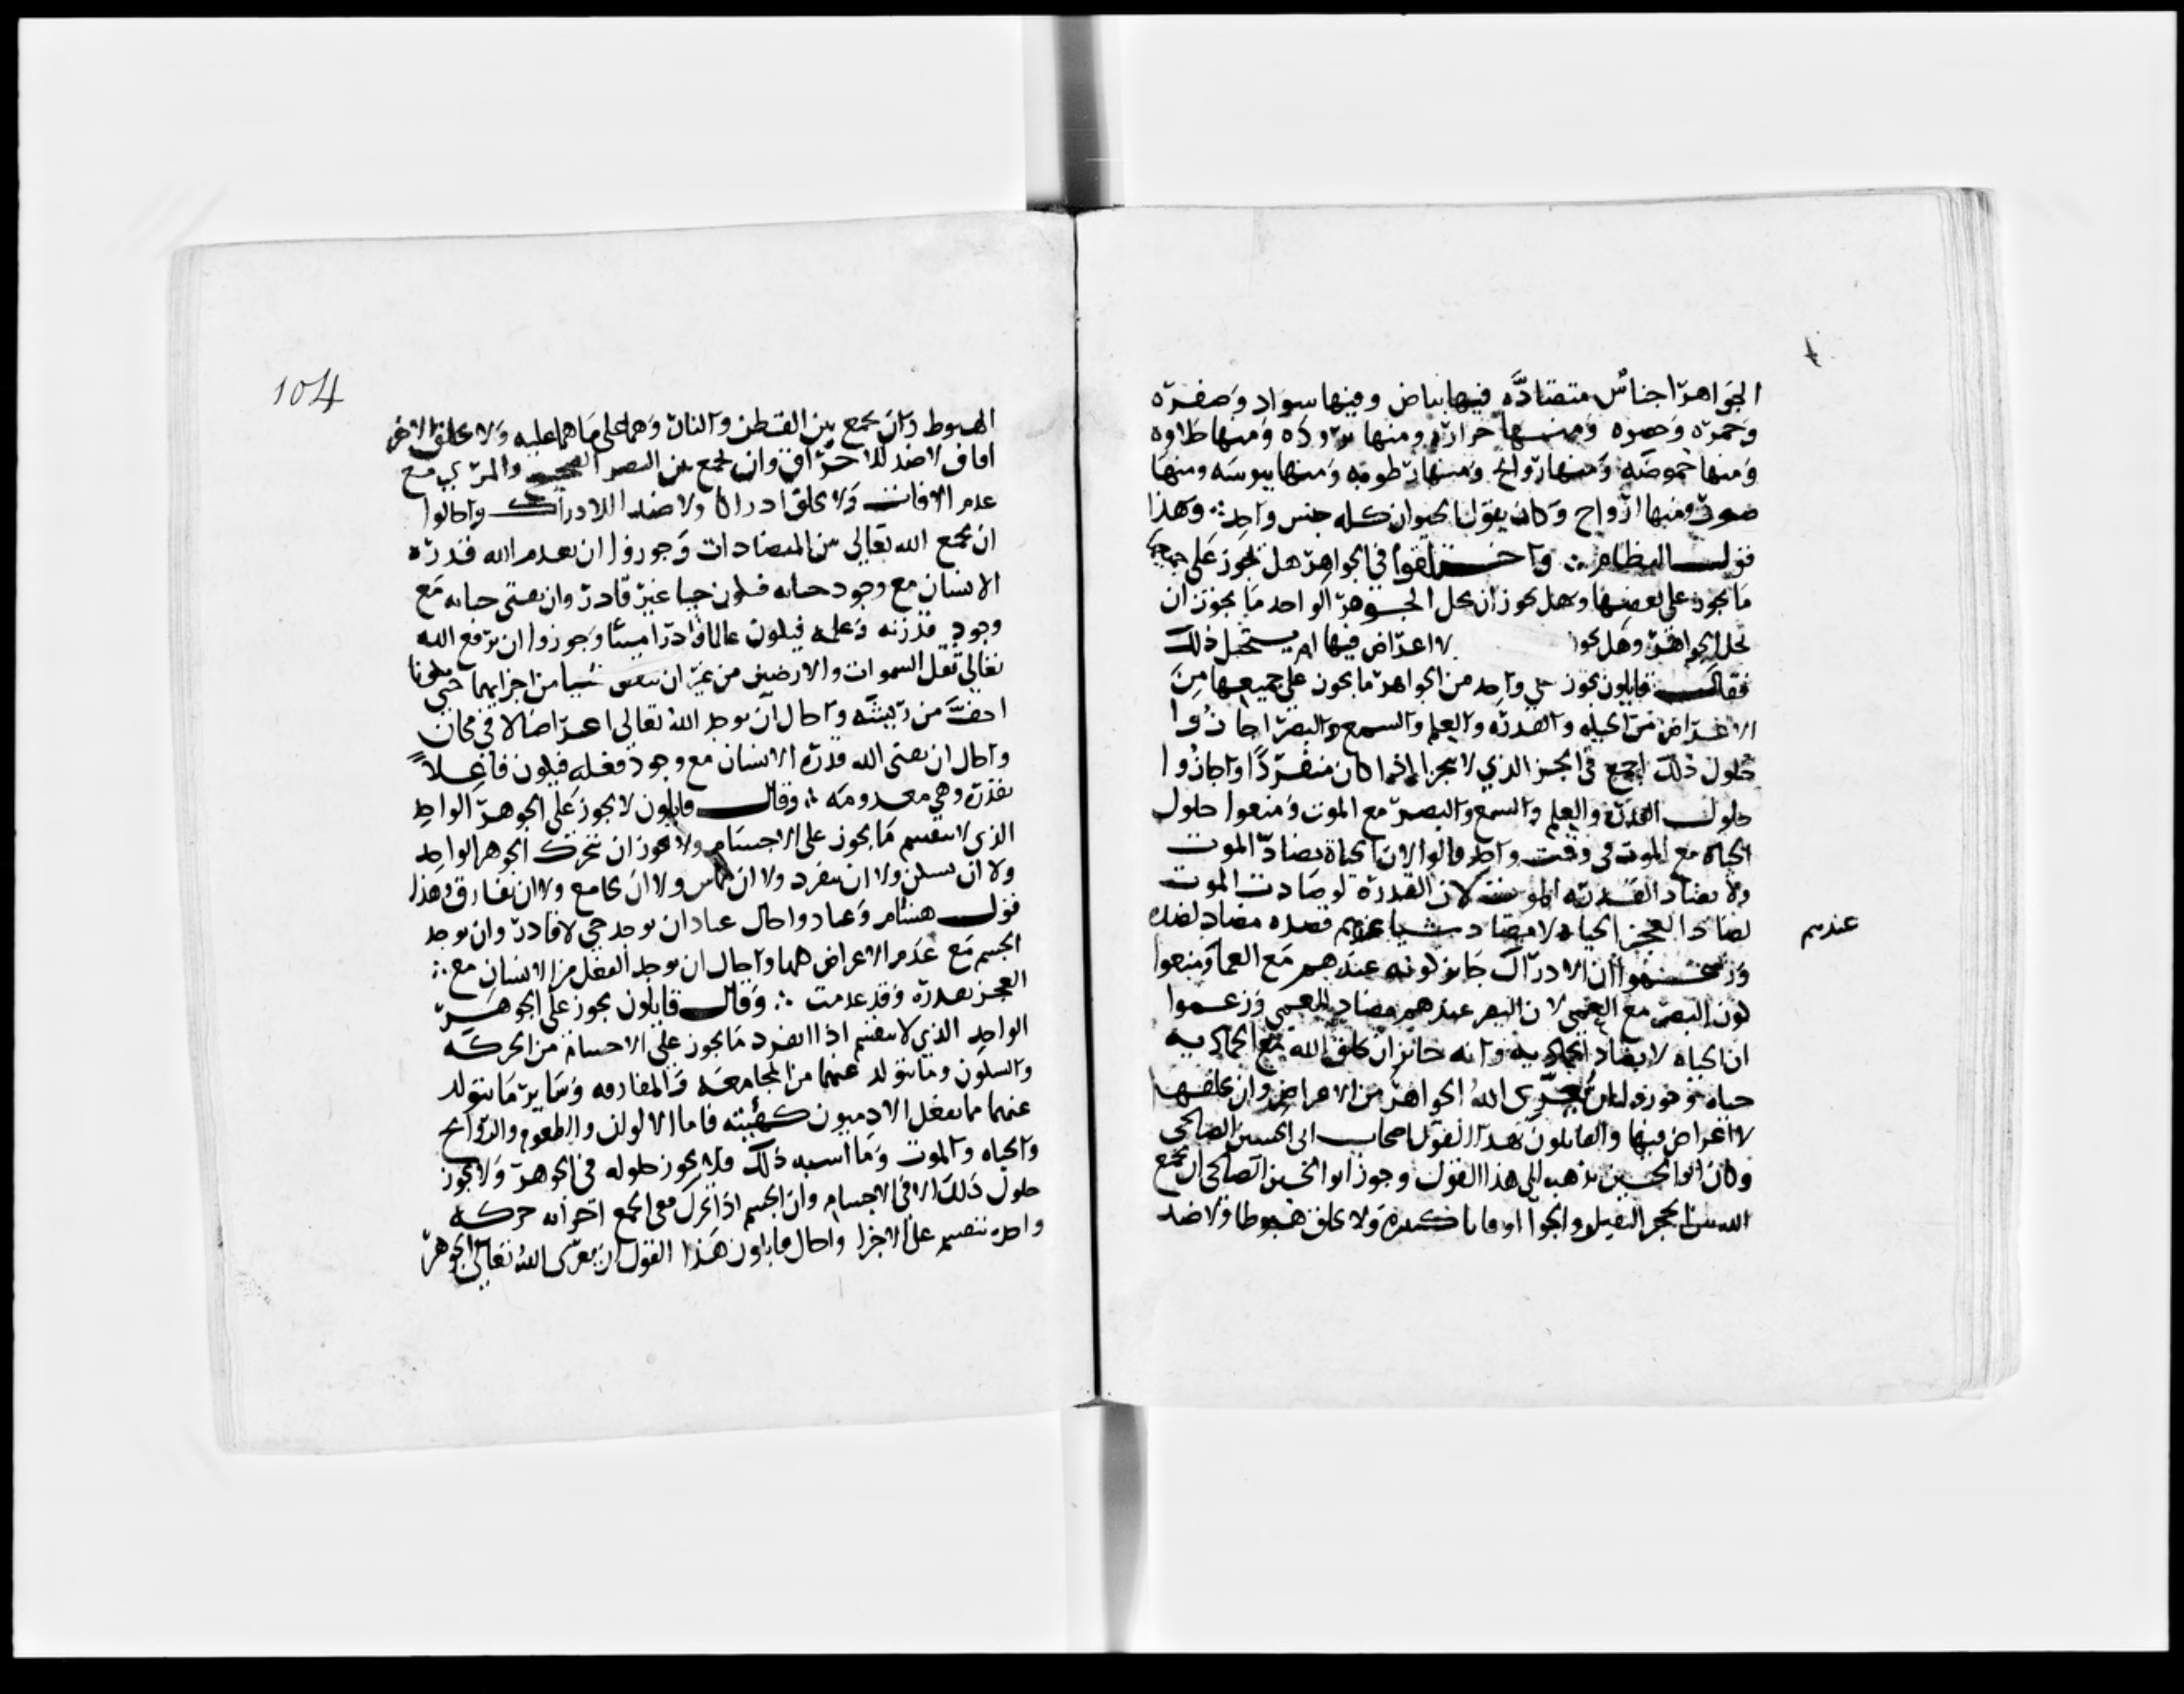 الجواهر اجناس متضادة فيها بياض وفيها سواد وصفرة
وحمرة وخضره ومنها حرارة ومنها برودة ومنها حلاوة
ومنها حموضه ومنها روايح ومنها رطوبه ومنها يبوسه ومنها
صور ومنها ارواح وكان يقول الحيوان كله جنس واحد ∴ وهذا
قول النظام ∴ واختلفوا في الجواهر هل يجوز على جميعها
ما يجوز على بعضها وهل يجوز ان يحل الجوهر الواحد ما يجوز ان
يحل الجواهر وهل يجوز لا اعراض فيها ام يستحيل ذلك
فقال قايلون يجوز على واحد من الجواهر ما يجوز على جميعها من
الاعراض من الحياه والقدره والعلم والسمع والبصر اجازوا
حلول ذلك اجمع في الجز الذي لا يتجزا اذا كان منفردا واجازوا
حلول القدرة والعلم والسمع والبصر مع الموت ومنعوا حلول
الحياة مع الموت في وقت واحد قالوا لان الحياة تضاد الموت
ولا تضاد القدرة الموت لان القدرة لو ضادت الموت
لضاد العجز الحياه لا مضاد شيا عندهم فضده مضاد لضده
عندهم
وزعموا ان الادراك جايز كونه عندهم مع العما ومنعوا
كون البصر مع العمى لان البصر عندهم مضاد للعمى وزعموا
ان الحياه لا تضاد الجمادية وانه جائز ان يخلق الله مع الجمادية
حياه وجوزوا ان يعري الله الجواهر من الاعراض وان يخلقها
لا اعراض فيها والقايلون بهذا القول اصحاب ابي الحسين الصالحي
وكان ابو الحسين يذهب الى هذا القول وجوز ابو الحسين الصالحي ان يجمع
الله بين الحجر الثقيل والجو اوقاتا كثيرة ولا يخلق هبوطا ولا ضد
104
الهبوط وان يجمع بين القطن والنار وهما على ما هما عليه ولا يخلق الاحر
اقا ولا ضد للاحراق وان يجمع بين البصر الصحيح والمرئي مع
عدم الافات ولا يخلق ادراكا ولا ضد اللادراك واحالوا
ان يجمع الله تعالى بين المتضادات وجوزوا ان يعدم الله قدرة
الانسان مع وجود حياته فيكون حيا غير قادر وان يفني حياته مع
وجود قدرته وعلمه فيكون عالما قادرا ميتا وجوزوا ان يرفع الله
تعالى ثقل السموات والارضين من غير ان ينقص شيا من اجزايهما حتى يكونا
اخف من ريشة واحال ان يوجد الله تعالى اعراضا لا في مكان
واحال ان يفني الله قدرة الانسان مع وجود فعله فيكون فاعلا
بقدرة وهي معدومه ∴ وقال قايلون لا يجوز على الجوهر الواحد
الذي لا ينقسم ما يجوز على الاجسام ولا يجوز ان يتحرك الجوهر الواحد
ولا ان يسكن ولا ان ينفرد ولا ان يماس ولا ان يجامع ولا ان يفارق وهذا
قول هشام وعباد واحال عباد ان يوجد حي لا قادر وان يوجد
الجسم مع عدم الاعراض كلها واحال ان يوجد الفعل من الانسان مع ∴
العجز بقدرة وقد عدمت ∴ وقال قايلون يجوز على الجوهر
الواحد الذي لا ينقسم اذا انفرد ما يجوز على الاجسام من الحركة
والسكون وما يتولد عنهما من المجامعه والمفارقه وساير ما يتولد
عنهما مما يفعل الادميون كهيئته فاما الالوان والطعوم والروايح
والحياه والموت وما اشبه ذلك فلا يجوز حلوله في الجوهر ولا يجوز
حلول ذلك الا في الاجسام وان الجسم اذا تحرك ففي جميع اجزائه حركة
واحدة تنقسم على الاجزا واحال قايلون هذا القول ان يعري الله تعالى الجوهر